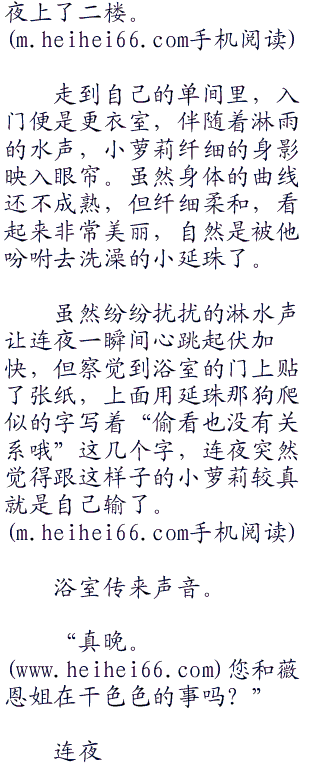 夜上了二楼。
(m.heihei66.com手机阅读)
走到自己的单间里，入
门便是更衣室，伴随着淋雨
的水声，小萝莉纤细的身影
映入眼帘。虽然身体的曲线
还不成熟，但纤细柔和，看
起来非常美丽，自然是被他
吩咐去洗澡的小延珠了。
虽然纷纷扰扰的淋水声
让连夜一瞬间心跳起伏加
快，但察觉到浴室的门上贴
了张纸，上面用延珠那狗爬
似的字写着“偷看也没有关
系哦”这几个字，连夜突然
觉得跟这样子的小萝莉较真
就是自己输了。
(m.heihei66.com手机阅读)
浴室传来声音。
“真晚。
(www.heihei66.com)您和薇
恩姐在干色色的事吗？”
连夜